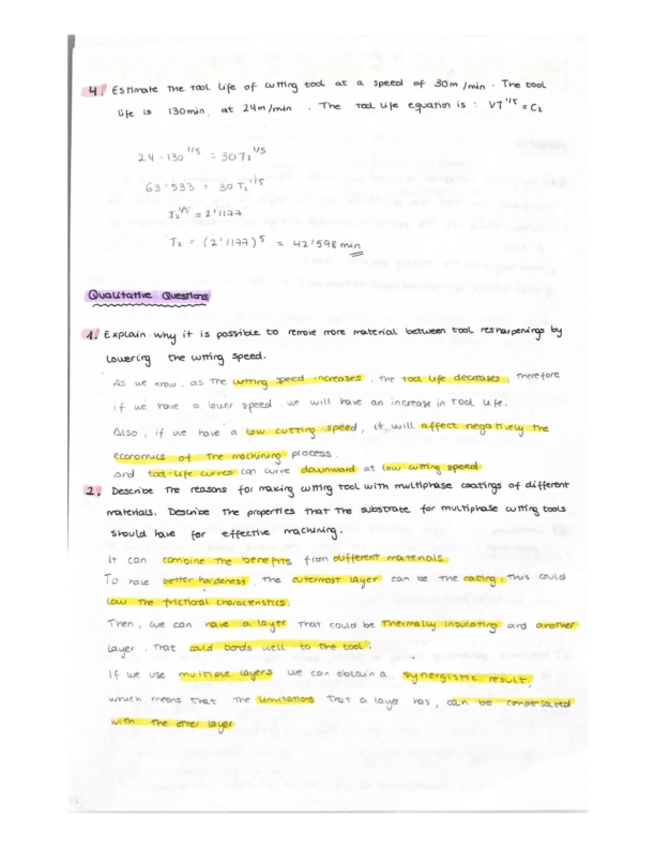 4. Estimate the tool life of cutting tool at a speed of 30m/min. The tool
life is 130min, at 24m/min. The tool life equation is: VT^1/5 = C2
24·130^1/5 = 30T2^1/5
63'533 = 30 T2^1/5
T2^1/5 = 2'1177
T2 = (2'1177)^5 = 42'598 min
Qualitative Questions
1. Explain why it is possible to remove more material between tool resharpenings by
lowering the cutting speed.
As we know, as the cutting speed increases, the tool life decreases, therefore
if we have a lower speed we will have an increase in tool life.
Also, if we have a low cutting speed, it will affect negatively the
economics of the machining process.
and tool-life curves can curve downward at low cutting speed
2. Describe the reasons for making cutting tool with multiphase coatings of different
materials. Describe the properties that the substrate for multiphase cutting tools
should have for effective machining.
It can combine the benefits from different materials.
To have better hardeness, the outermost layer can be the coating. This could
low the frictional characteristics.
Then, we can have a layer that could be thermally insulating and another
layer, that could bonds well to the tool.
If we use multiple layers we can obtain a synergistic result,
which means that the limitations that a layer has, can be compensated
with the other layer